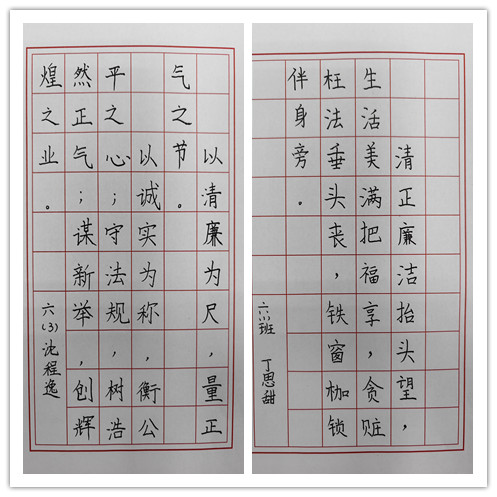 以清廉为尺，量正
气之节。
以诚实为称，衡公
平之心；守法规，树浩
然正气；谋新举，创辉
煌之业。
六(3)沈程逸
清正廉洁抬头望，
生活美满把福享，贪赃
枉法垂头丧，铁窗枷锁
伴身旁。
班 丁思甜